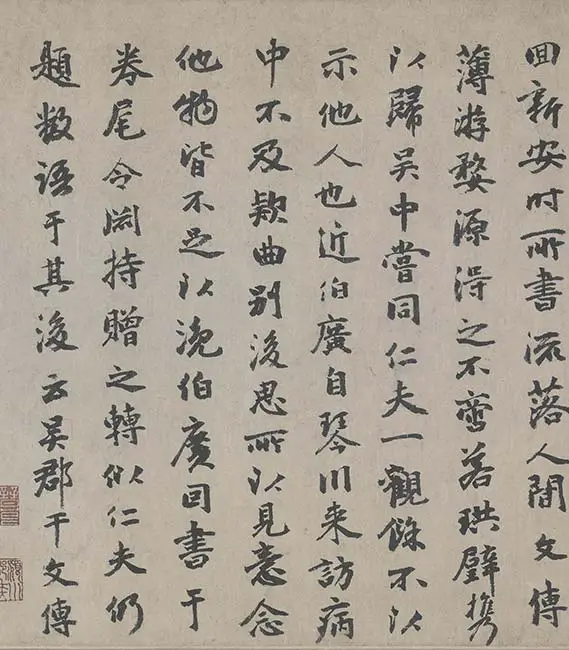 囬新安时所書流落人間文傳
薄游婺源得之不啻若珙璧携
以歸吴中嘗同仁夫一觀餘不以
示他人也近伯廣自琴川来訪病
中不及欵曲别後思所以見意念
他物皆不足以浼伯廣囙書于
卷尾令持贈之轉似仁夫仍
題数语于其後云吴郡干文傳